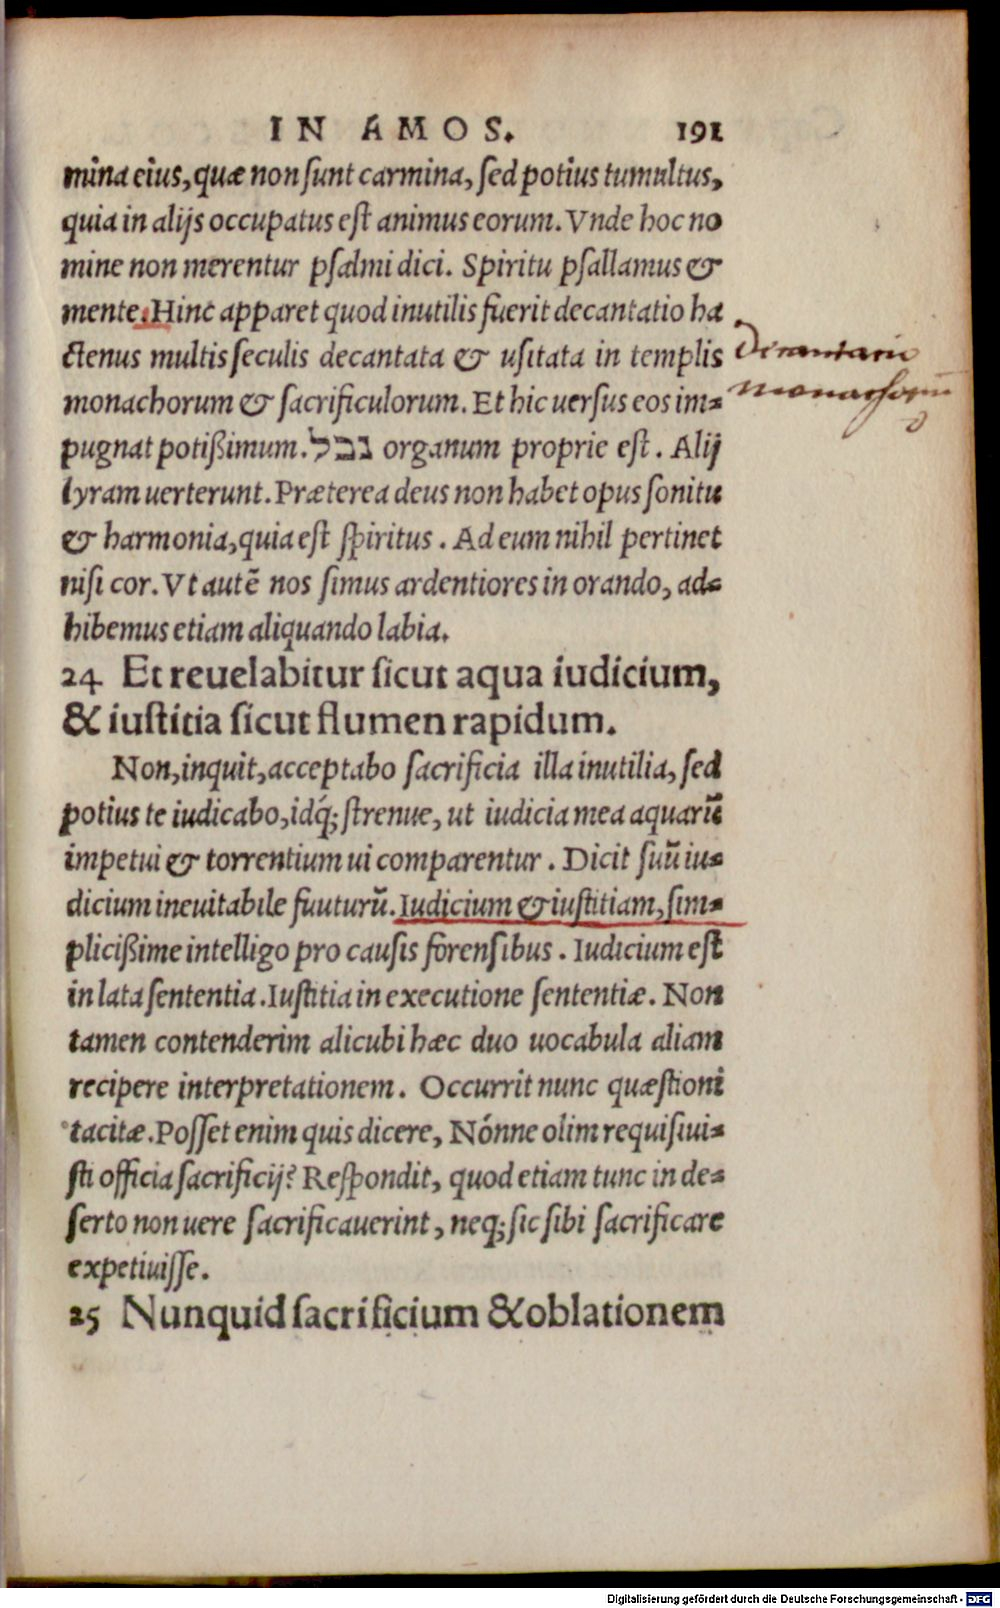 IN AMOS. 191
mina eius, quæ non sunt carmina, sed potius tumultus,
quia in alijs occupatus est animus eorum. Vnde hoc no
mine non merentur psalmi dici. Spiritu psallamus &
mente. Hinc apparet quod inutilis fuerit decantatio ha
ctenus multis seculis decantata & usitata in templis
monachorum & sacrificulorum. Et hic uersus eos im-
pugnat potißimum. נבל organum proprie est. Alij
lyram uerterunt. Præterea deus non habet opus sonitu
& harmonia, quia est spiritus. Ad eum nihil pertinet
nisi cor. Vt autē nos simus ardentiores in orando, ad-
hibemus etiam aliquando labia.
Decantatio
monachorum
24 Et reuelabitur sicut aqua iudicium,
& iustitia sicut flumen rapidum.
Non, inquit, acceptabo sacrificia illa inutilia, sed
potius te iudicabo, idq́; strenue, ut iudicia mea aquarū
impetui & torrentium ui comparentur. Dicit suū iu-
dicium ineuitabile fuuturū. Iudicium & iustitiam, sim-
plicißime intelligo pro causis forensibus. Iudicium est
in lata sententia. Iustitia in executione sententiæ. Non
tamen contenderim alicubi hæc duo uocabula aliam
recipere interpretationem. Occurrit nunc quæstioni
tacitæ. Posset enim quis dicere, Nónne olim requisiui-
sti officia sacrificij? Respondit, quod etiam tunc in de-
serto non uere sacrificauerint, neq; sic sibi sacrificare
expetiuisse.
25 Nunquid sacrificium & oblationem
Digitalisierung gefördert durch die Deutsche Forschungsgemeinschaft - DFG